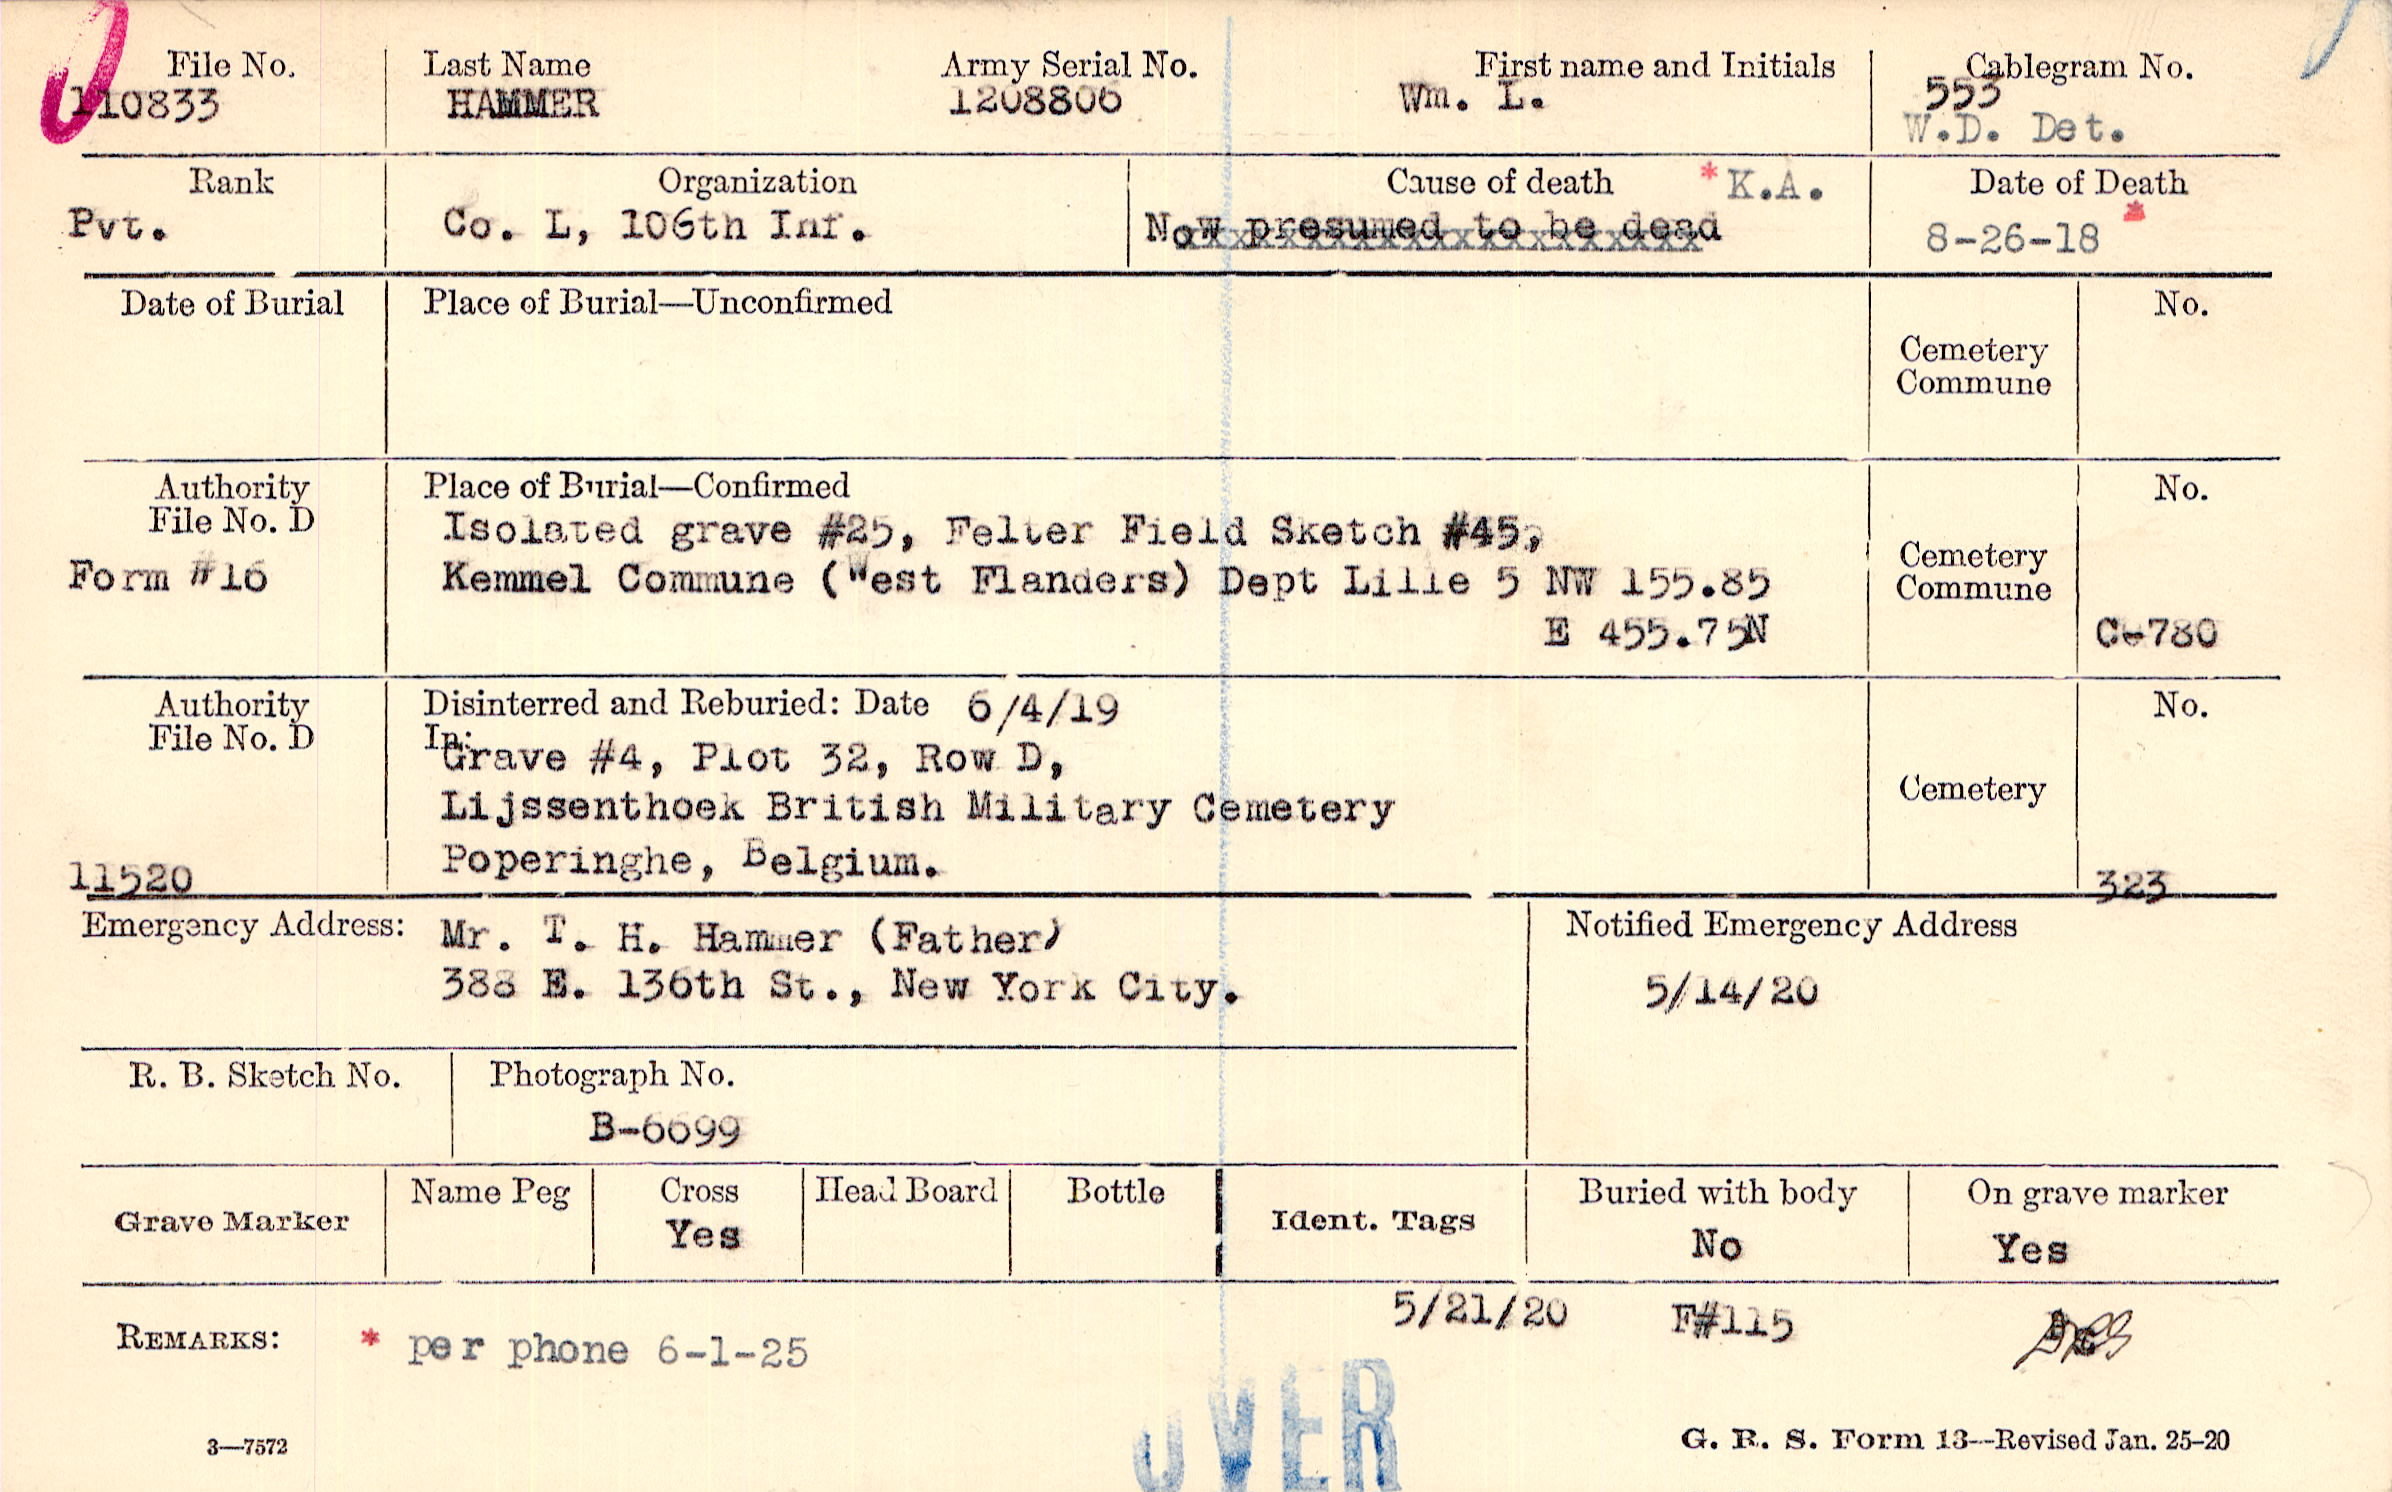 File No. Last Name Army Serial No. First name and Initials Cablegram No.
110833 HAMMER 1208806 Wm. L. 553
W.D. Det.
Rank Organization Cause of death *K.A. Date of Death
Pvt. Co. L, 106th Inf. Now presumed to be dead 8-26-18 *
Date of Burial Place of Burial—Unconfirmed No.
Cemetery
Commune
Authority Place of Burial—Confirmed No.
File No. D Isolated grave #25, Felter Field Sketch #45,
Form #16 Kemmel Commune (West Flanders) Dept Lille 5 NW 155.85 Cemetery
Commune
E 455.75N C-780
Authority Disinterred and Reburied: Date 6/4/19 No.
File No. D In:
Grave #4, Plot 32, Row D,
Lijssenthoek British Military Cemetery Cemetery
Poperinghe, Belgium.
11520 323
Emergency Address: Mr. T. H. Hammer (Father) Notified Emergency Address
388 E. 136th St., New York City. 5/14/20
R. B. Sketch No. Photograph No.
B-6699
Grave Marker Name Peg Cross Head Board Bottle Ident. Tags Buried with body On grave marker
Yes No Yes
5/21/20 F#115
REMARKS: * per phone 6-1-25
OVER
3—7572 G. R. S. Form 13—Revised Jan. 25-20